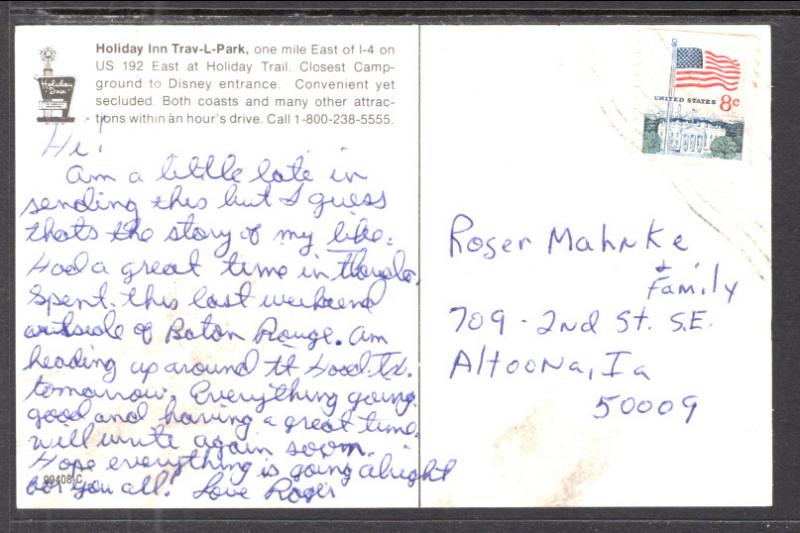 Holiday Inn Trav-L-Park, one mile East of I-4 on
US 192 East at Holiday Trail. Closest Camp-
ground to Disney entrance. Convenient yet
secluded. Both coasts and many other attrac-
tions within an hour's drive. Call 1-800-238-5555.
Holiday Inn
Hi!
Am a little late in
sending this but I guess
thats the story of my life.
Had a great time in Florida.
Spent this last weekend
outside of Baton Rouge. Am
heading up around Ft Hood. Tx.
tomorrow. Everything going
good and having a great time.
will write again soon.
Hope everything is going alright
for you all! Love Roger
99408-C
UNITED STATES 8c
Roger Mahnke
& Family
709 - 2nd St. S.E.
Altoona, Ia
50009